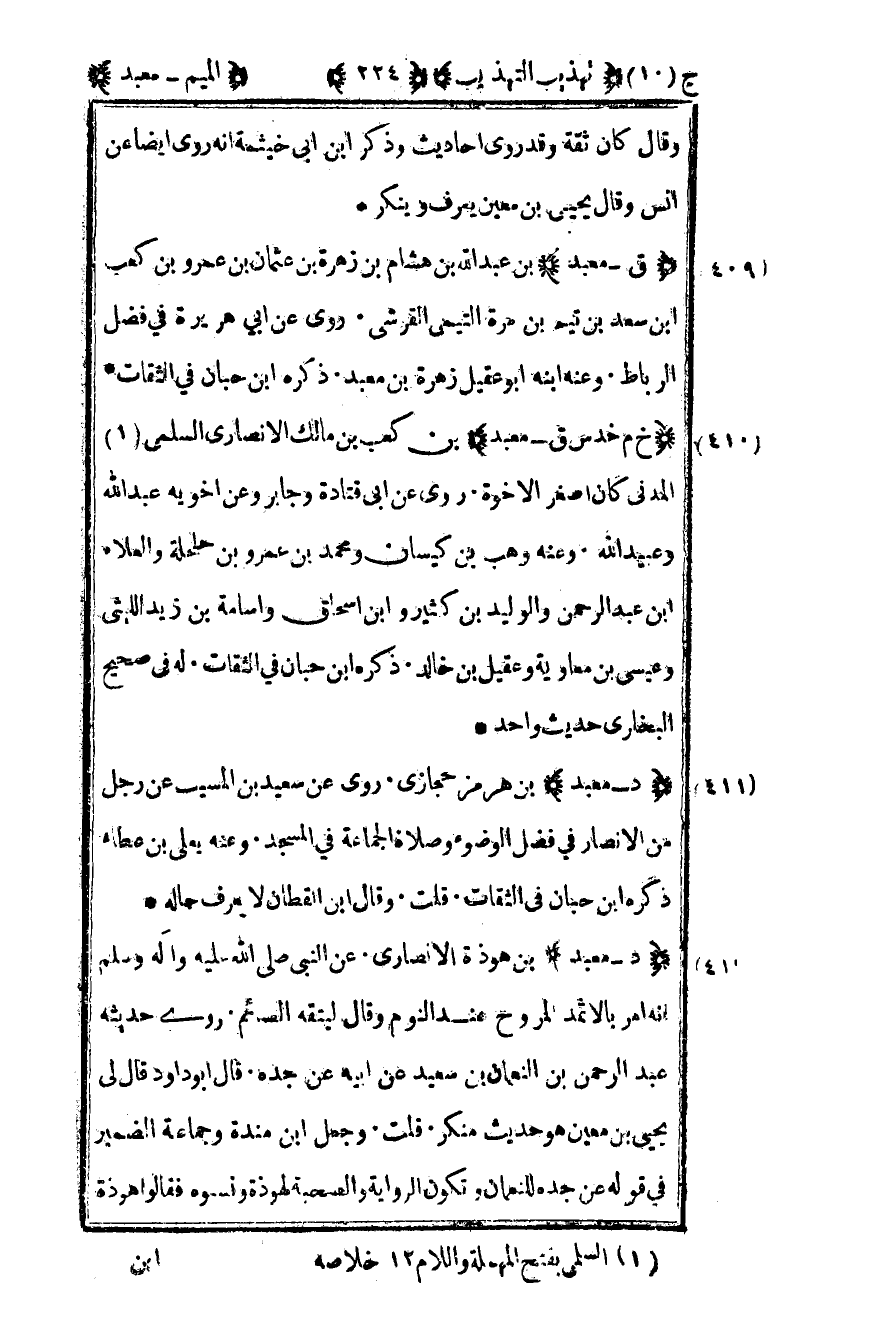 ج (١٠) ﴿ تهذيب التهذيب ﴾ ﴿ ٢٢٤ ﴾ ﴿ الميم ـ معبد ﴾
وقال كان ثقة وقد روى احاديث وذكر ابن ابى خيثمة انه روى ايضا عن
انس وقال يحيى بن معين يعرف وينكر *
(٤٠٩ ﴿ ق ـ معبد ﴾ بن عبد الله بن هشام بن زهرة بن عثمان بن عمرو بن كعب
ابن سعد بن تيم بن مرة التيمى القرشى ٠ روى عن ابي هريرة في فضل
الرباط ٠ وعنه ابنه ابو عقيل زهرة بن معبد ٠ ذكره ابن حبان في الثقات *
(٤١٠) ﴿ خ م خد س ق ـ معبد ﴾ بن كعب بن مالك الانصارى السلمى (١)
المدنى كان اصغر الاخوة ٠ روى عن ابى قتادة وجابر وعن اخويه عبد الله
وعبيد الله ٠ وعنه وهب بن كيسان ومحمد بن عمرو بن حلحلة والعلاء
ابن عبد الرحمن والوليد بن كثير و ابن اسحاق واسامة بن زيد الليثى
وعيسى بن معاوية وعقيل بن خالد ٠ ذكره ابن حبان في الثقات ٠ له فى صحيح
البخارى حديث واحد *
(٤١١) ﴿ د ـ معبد ﴾ بن هرمز حجازى ٠ روى عن سعيد بن المسيب عن رجل
من الانصار في فضل الوضوء وصلاة الجماعة في المسجد ٠ وعنه يعلى بن عطاء
ذكره ابن حبان فى الثقات ٠ قلت ٠ وقال ابن القطان لا يعرف حاله *
(٤١ ﴿ د ـ معبد ﴾ بن هوذة الانصارى ٠ عن النبى صلى الله عليه وآله وسلم
انه امر بالاثمد المروح عند النوم وقال ليتقه الصائم ٠ روى حديثه
عبد الرحمن بن النعمان بن معبد عن ابيه عن جده ٠ قال ابو داود قال لى
يحيى بن معين هو حديث منكر ٠ قلت ٠ وجعل ابن مندة وجماعة الضمير
في قوله عن جده للنعمان و تكون الرواية والصحبة لهوذة ونسبوه فقالوا هوذة
(١) السلمى بفتح المهملة واللام ١٢ خلاصه ابن